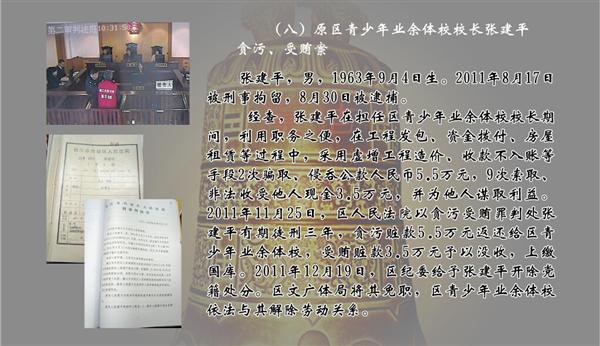 第二审判法庭 10:31:5
被告人
（八）原区青少年业余体校校长张建平
贪污、受贿案
张建平，男，1963年9月4日生。2011年8月17日
被刑事拘留，8月30日被逮捕。
经查，张建平在担任区青少年业余体校校长期
间，利用职务之便，在工程发包、资金拨付、房屋
租赁等过程中，采用虚增工程造价、收款不入账等
手段2次骗取、侵吞公款人民币5.5万元，9次索取、
非法收受他人现金3.5万元，并为他人谋取利益。
2011年11月25日，区人民法院以贪污受贿罪判处张
建平有期徒刑三年，贪污赃款5.5万元返还给区青
少年业余体校，受贿赃款3.5万元予以没收，上缴
国库。2011年12月19日，区纪委给予张建平开除党
籍处分。区文广体局将其免职，区青少年业余体校
依法与其解除劳动关系。